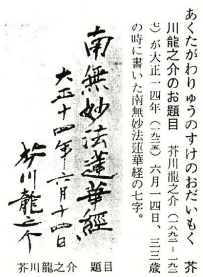 あくたがわりゅうのすけのおだいもく　芥
川龍之介のお題目　芥川龍之介（一八九二－一九
二七）が大正一四年（一九二五）六月一四日、三三歳
の時に書いた南無妙法蓮華経の七字。
南無妙法蓮華經
大正十四年六月十四日
芥川龍之介
芥川龍之介　題目